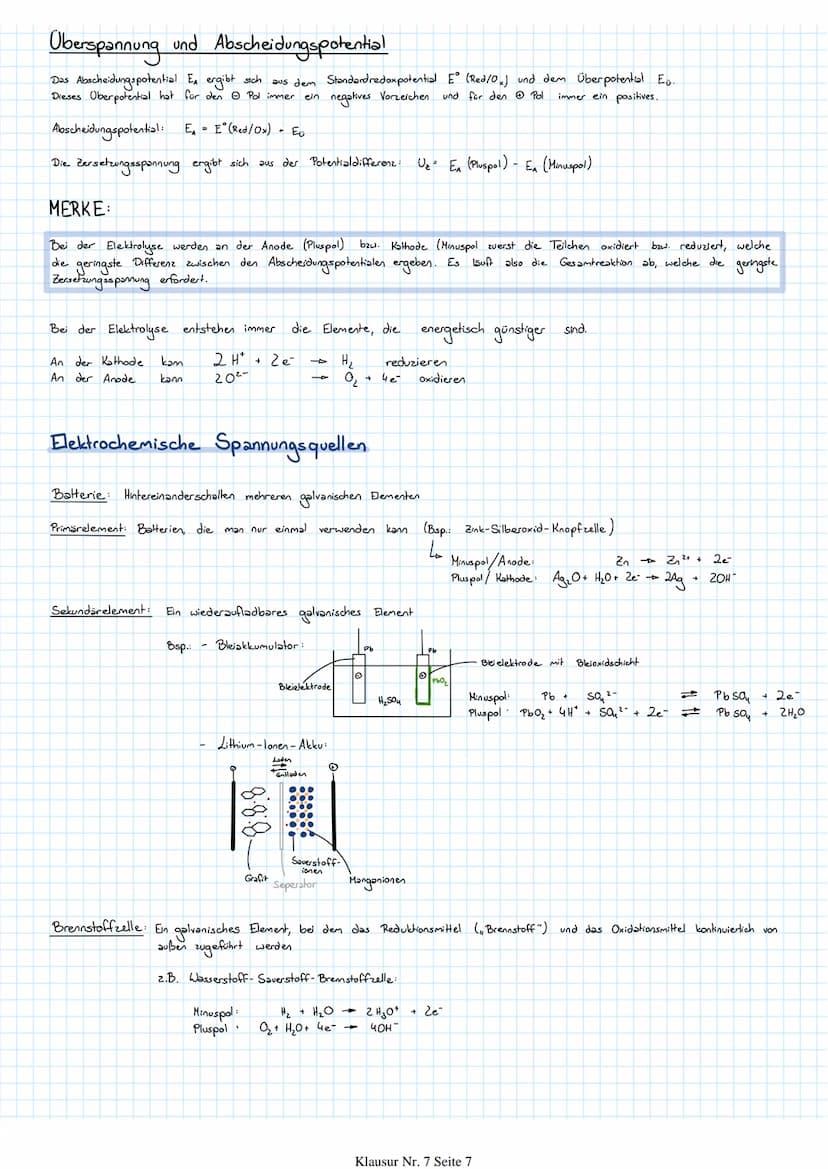 Überspannung und Abscheidungspotential
Das Abscheidungspotential E_A ergibt sich aus dem Standardredoxpotential E° (Red/Ox) und dem Überpotential E_Ü.
Dieses Überpotential hat für den ⊖ Pol immer ein negatives Vorzeichen und für den ⊕ Pol immer ein positives.
Abscheidungspotential: E_A = E°(Red/Ox) + E_Ü
Die Zersetzungsspannung ergibt sich aus der Potentialdifferenz: U_Z = E_A (Pluspol) - E_A (Minuspol)
MERKE:
Bei der Elektrolyse werden an der Anode (Pluspol) bzw. Kathode (Minuspol zuerst die Teilchen oxidiert bzw. reduziert, welche
die geringste Differenz zwischen den Abscheidungspotentialen ergeben. Es läuft also die Gesamtreaktion ab, welche die geringste
Zersetzungsspannung erfordert.
Bei der Elektrolyse entstehen immer die Elemente, die energetisch günstiger sind.
An der Kathode kann 2 H⁺ + 2e⁻ → H₂ reduzieren
An der Anode kann 2O²⁻ → O₂ + 4e⁻ oxidieren
Elektrochemische Spannungsquellen
Batterie: Hintereinanderschalten mehreren galvanischen Elementen
Primärelement: Batterien, die man nur einmal verwenden kann (Bsp.: Zink-Silberoxid-Knopfzelle)
↳ Minuspol/Anode: Zn → Zn²⁺ + 2e⁻
Pluspol/Kathode: Ag₂O + H₂O + 2e⁻ → 2Ag + 2OH⁻
Sekundärelement: Ein wiederaufladbares galvanisches Element
Bsp.: - Bleiakkumulator:
Pb Pb
Bleielektrode mit Bleioxidschicht
⊖ ⊕ PbO₂
Bleielektrode
H₂SO₄
Minuspol: Pb + SO₄²⁻ ⇌ PbSO₄ + 2e⁻
Pluspol: PbO₂ + 4H⁺ + SO₄²⁻ + 2e⁻ ⇌ PbSO₄ + 2H₂O
- Lithium-Ionen-Akku:
Laden
Entladen
⊖ ⊕
Sauerstoff-
ionen
Grafit
Seperator
Manganionen
Brennstoffzelle: Ein galvanisches Element, bei dem das Reduktionsmittel („Brennstoff") und das Oxidationsmittel kontinuierlich von
außen zugeführt werden
z.B. Wasserstoff-Sauerstoff-Brennstoffzelle:
Minuspol: H₂ + H₂O → 2 H₃O⁺ + 2e⁻
Pluspol: O₂ + H₂O + 4e⁻ → 4OH⁻
Klausur Nr. 7 Seite 7